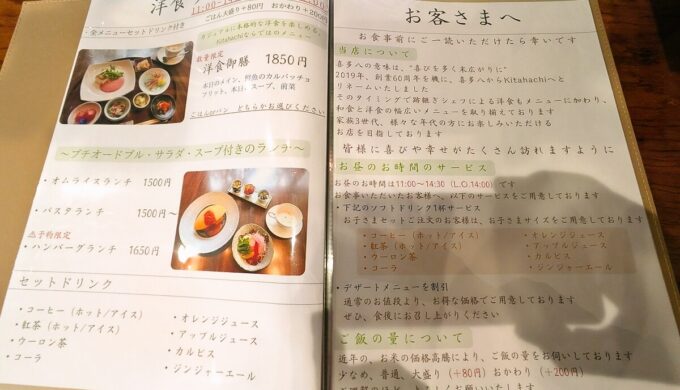 洋食
11:00-14:
ごはん大盛り+80円 おかわり+200円
・全メニューセットドリンク付き
カジュアルに本格的な洋食を楽しめる、
Kitahachiならではのメニュー
数量限定
洋食御膳 1850円
本日のメイン、鮮魚のカルパッチョ
フリット、本日、スープ、前菜
ごはんorパン どちらかお選びください
～プチオードブル・サラダ・スープ付きのランチ～
・オムライスランチ 1500円
・パスタランチ 1500円～
予約限定
・ハンバーグランチ 1650円
セットドリンク
・コーヒー(ホット/アイス)
・紅茶(ホット/アイス)
・ウーロン茶
・コーラ
・オレンジジュース
・アップルジュース
・カルピス
・ジンジャーエール
お客さまへ
お食事前にご一読いただけたら幸いです
当店について
喜多八の意味は、"喜びを多く末広がりに"
2019年、創業60周年を機に、喜多八からKitahachiへと
リネームいたしました
そのタイミングで跡継ぎシェフによる洋食もメニューに加わり、
和食と洋食の幅広いメニューを取り揃えております
家族3世代、様々な年代の方にお楽しみいただける
お店を目指しております
皆様に喜びや幸せがたくさん訪れますように
お昼のお時間のサービス
お昼のお時間は11:00～14:30(L.O.14:00)です
お食事いただいたお客様へ、以下のサービスをご用意しております
・下記のソフトドリンク1杯サービス
お子さまセットご注文のお客様は、お子さまサイズをご用意しております
・コーヒー(ホット/アイス)
・紅茶(ホット/アイス)
・ウーロン茶
・コーラ
・オレンジジュース
・アップルジュース
・カルピス
・ジンジャーエール
・デザートメニューを割引
通常のお値段より、お得な価格でご用意しております
ぜひ、食後にお召し上がりください
ご飯の量について
近年の、お米の価格高騰により、ご飯の量をお伺いしております
少なめ、普通、大盛り(+80円) おかわり(+200円)